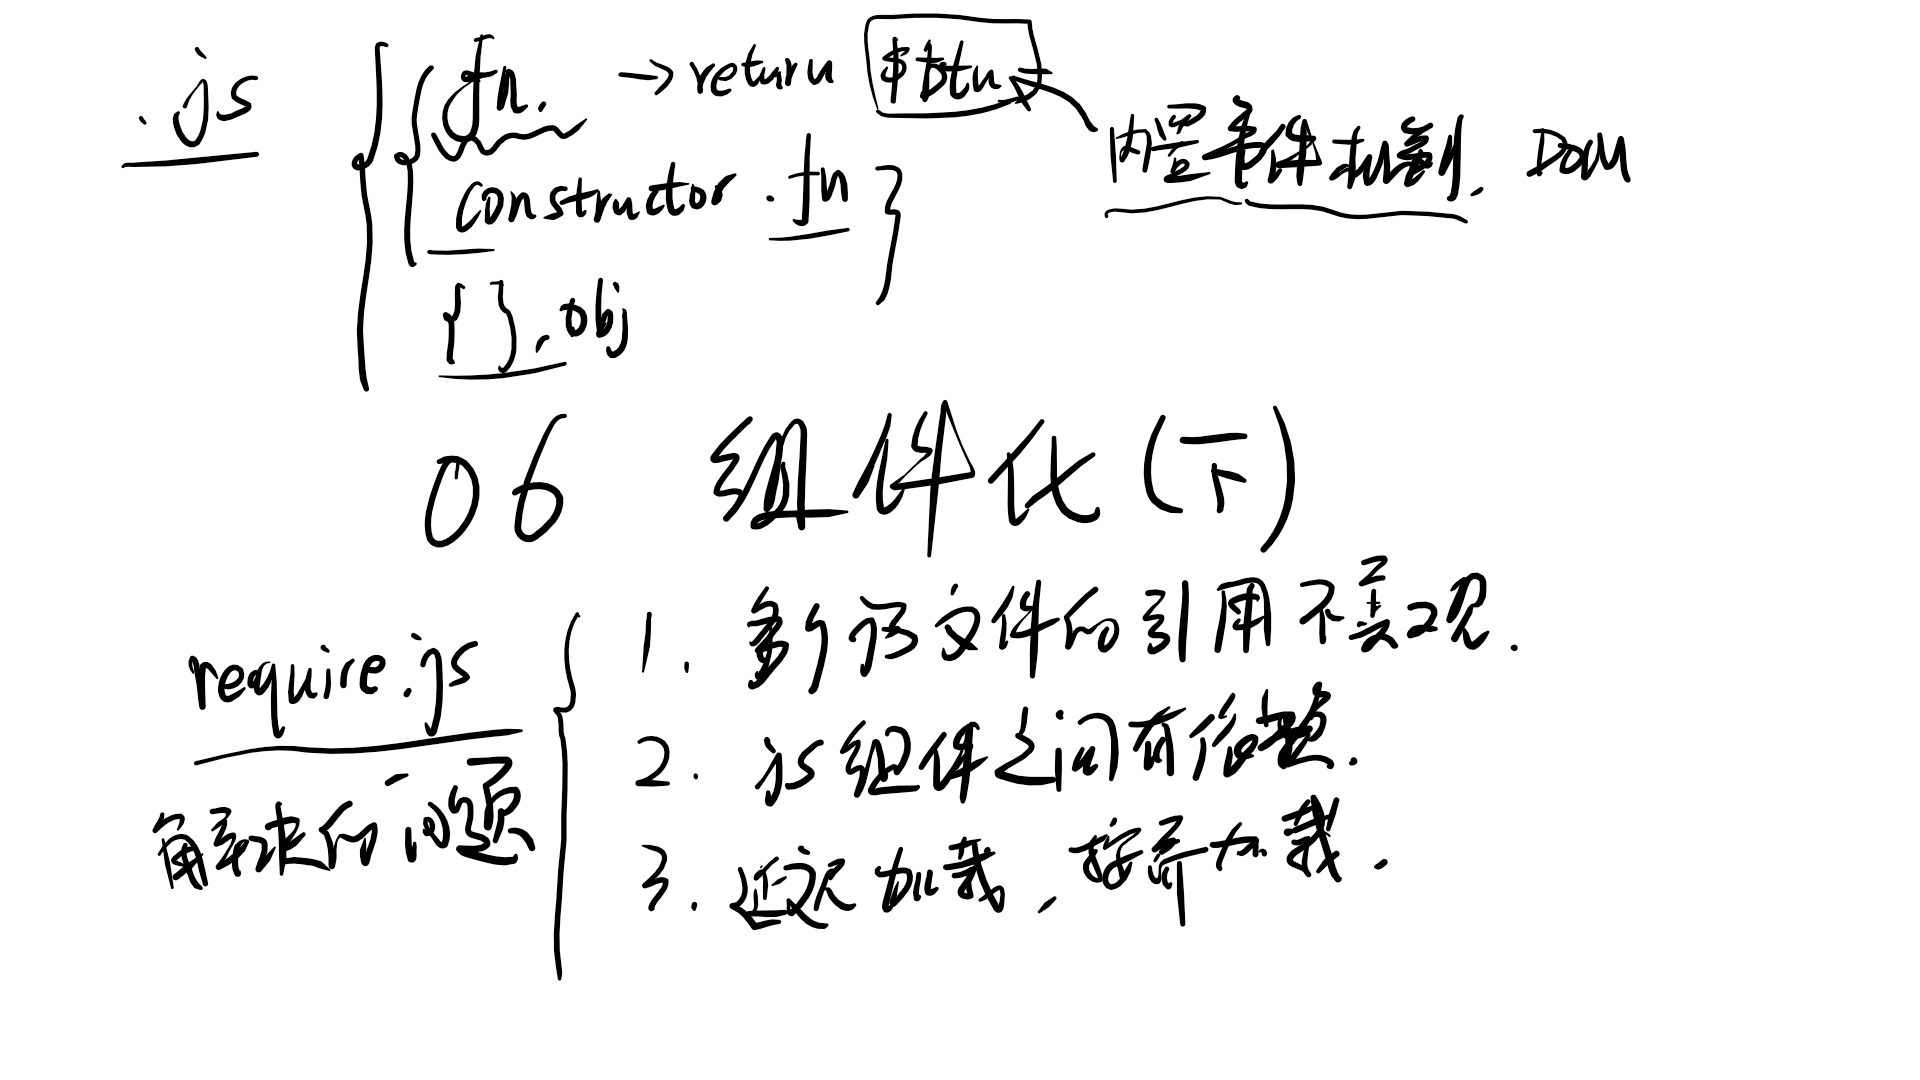 .js
fn. → return $btn
内置事件机制. DOM
constructor.fn
{}.obj
06 组件化(下)
require.js
解决的问题
1. 多行文件的引用不美观.
2. js组件之间有依赖.
3. 延迟加载, 按需加载.